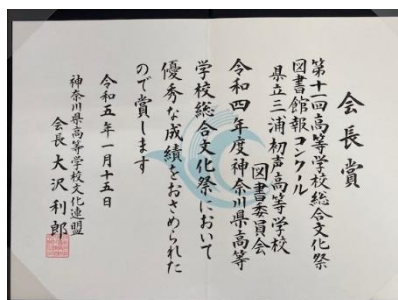 会長賞
第十一回高等学校総合文化祭
図書館報コンクール
県立三浦初声高等学校
図書委員会
令和四年度神奈川県高等
学校総合文化祭において
優秀な成績をおさめられた
ので賞します
令和五年一月十五日
神奈川県高等学校文化連盟
会長 大沢利郎